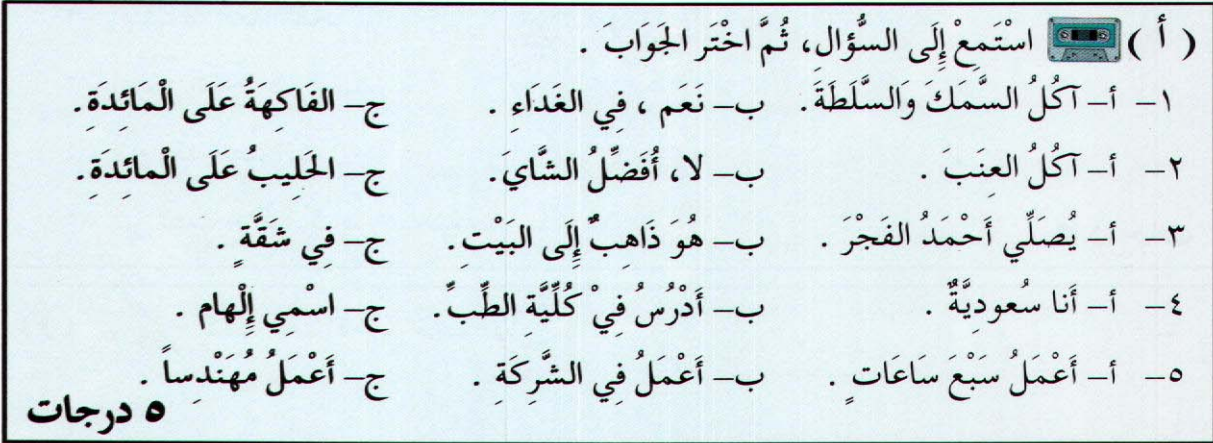 ( أ ) اسْتَمِعْ إِلَى السُّؤَالِ، ثُمَّ اخْتَرِ الجَوَابَ .
١- أ- آكُلُ السَّمَكَ وَالسَّلَطَةَ. ب- نَعَم ، فِي الغَدَاءِ . ج- الفَاكِهَةُ عَلَى الْمَائِدَةِ.
٢- أ- آكُلُ العِنَبَ . ب- لا، أُفَضِّلُ الشَّايَ. ج- الحَلِيبُ عَلَى الْمائِدَةِ.
٣- أ- يُصَلِّي أَحْمَدُ الفَجْرَ . ب- هُوَ ذَاهِبٌ إِلَى البَيْتِ. ج- فِي شَقَّةٍ .
٤- أ- أَنا سُعودِيَّةٌ . ب- أَدْرُسُ فِيْ كُلِّيَّةِ الطِّبِّ. ج- اسْمِي إِلْهام .
٥- أ- أَعْمَلُ سَبْعَ سَاعَاتٍ . ب- أَعْمَلُ فِي الشَّرِكَةِ . ج- أَعْمَلُ مُهَنْدِساً .
٥ درجات